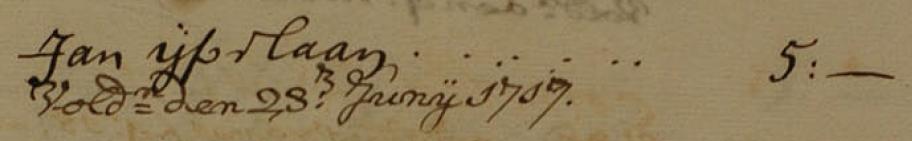 Jan ijsvlaan. . . . . . . 5:—
Vold.n den 28.n Junij 1717.